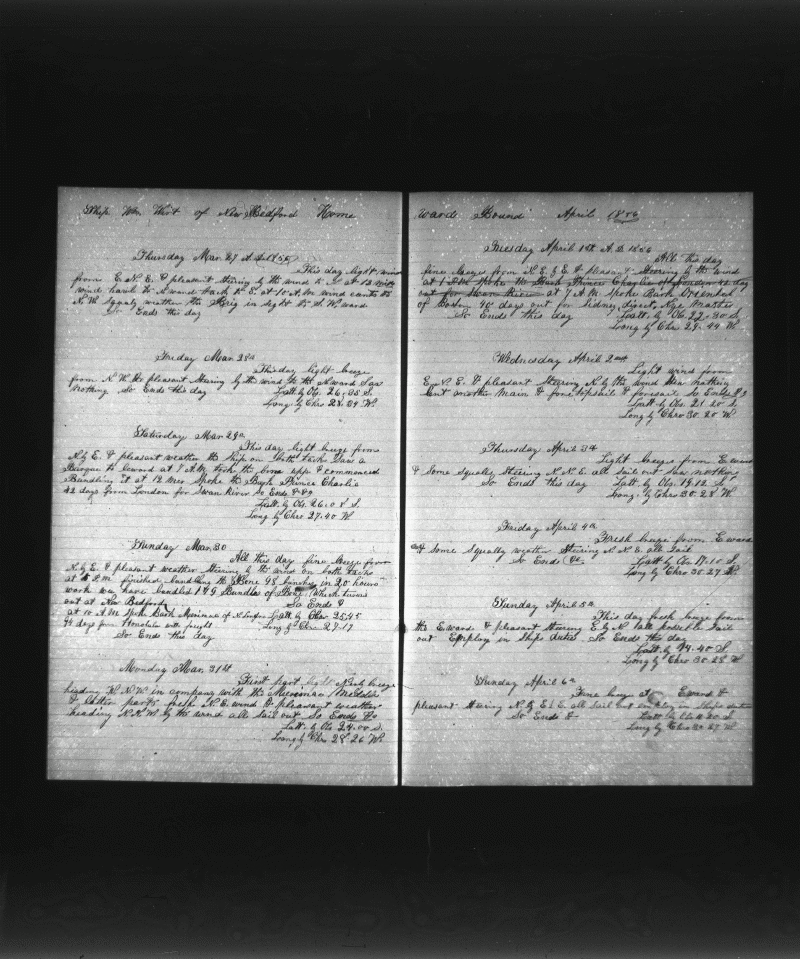 Ship Wm Wirt of New Bedford Home
Thursday Mar. 27 A.D. 1856
This day light wind
from E.N.E. & pleasant steering by the wind to at 12
wind hauls to tack to at 10 A.M. wind cants to
N.W. squaly weather the Brig in sight to S.W. ward
So Ends this day
Friday Mar. 28th
This day light breeze
from N.W. & pleasant Steering by the wind to the Saw
Nothing So Ends this day Latt. by Obs. 26.35 S.
Long. by Chro 28.04 W.
Saturday Mar 29th
This day light breeze from
N.E. & pleasant weather the Ship on both tacks Saw a
Barque to leward at 7 A.M. took the bone upp & commenced
Bundling It at 12 Mer Spoke the Bgh Prince Charlie
42 days from London for Swan River So Ends
Latt. by Obs. 26.0 S.
Long. by Chro 27.40 W.
Sunday Mar. 30
All this day fine breeze from
N. by E. & pleasant weather steering by the wind on both tacks
at P.M. finished bundling the Bone 98 bunches in 20 hours
work we have bundled 149 Bundles of Bone which turns
out at New Bedford So Ends &
at 10 A.M. Spoke Bark Merrimac of N London Latt. by Obs 25.45
94 days from Honolulu with freight Long by Chro 29.17
So Ends this day
Monday Mar. 31st
First part light breeze
heading W.N.W. in company with the Merrimac Middle
& latter parts fresh N.E. wind & pleasant weather
heading N.N.W. by the wind all sail out So Ends
Latt. by Obs 24.00 S.
Long by Chro 28.26 W.
ward Bound April 1856
Tuesday April 1st A.D. 1856
All this day
fine breezes from N.E. by E. & pleasant Steering by the wind
at Spoke the Prince Charlie of London 42 day
out for Swan River at 7 A.M. Spoke Bark Oriental
of Boston 40 days out for Sidney Direct, Nye Master
So Ends this day Latt. by Ob 22.30 S.
Long by Chro 29.44 W.
Wednesday April 2nd
Light wind from
E.N.E. & pleasant Steering N. by the wind Saw nothing
bent another Main & fore topsail & foresail So Ends
Latt. by Obs. 21.20 S.
Long by Chro 30.20 W.
Thursday April 3d
Light breezes from E ward
& Some squally Steering N.N.E. all sail out saw nothing
So Ends this day Latt. by Obs. 19.12 S.
Long. by Chro 30.28 W.
Friday April 4th
Fresh breeze from E. ward
& some squaly weather Steering N.N.E. all sail
So Ends &c. Latt by Obs 17.10 S.
Long by Chro 30.27 W.
Sunday April 5th
This day fresh breeze from
the E.ward & pleasant steering E. by N. all possible sail
out Employ in Ships duties So Ends this day
Latt. by 14.40 S.
Long by Chro 30.28 W
Sunday April 6th
Fine breeze Eward &
pleasant Steering N. by E. all sail out employ in Ships duties
So Ends & Latt by Obs 20 S.
Long by Chro 30.27 W.